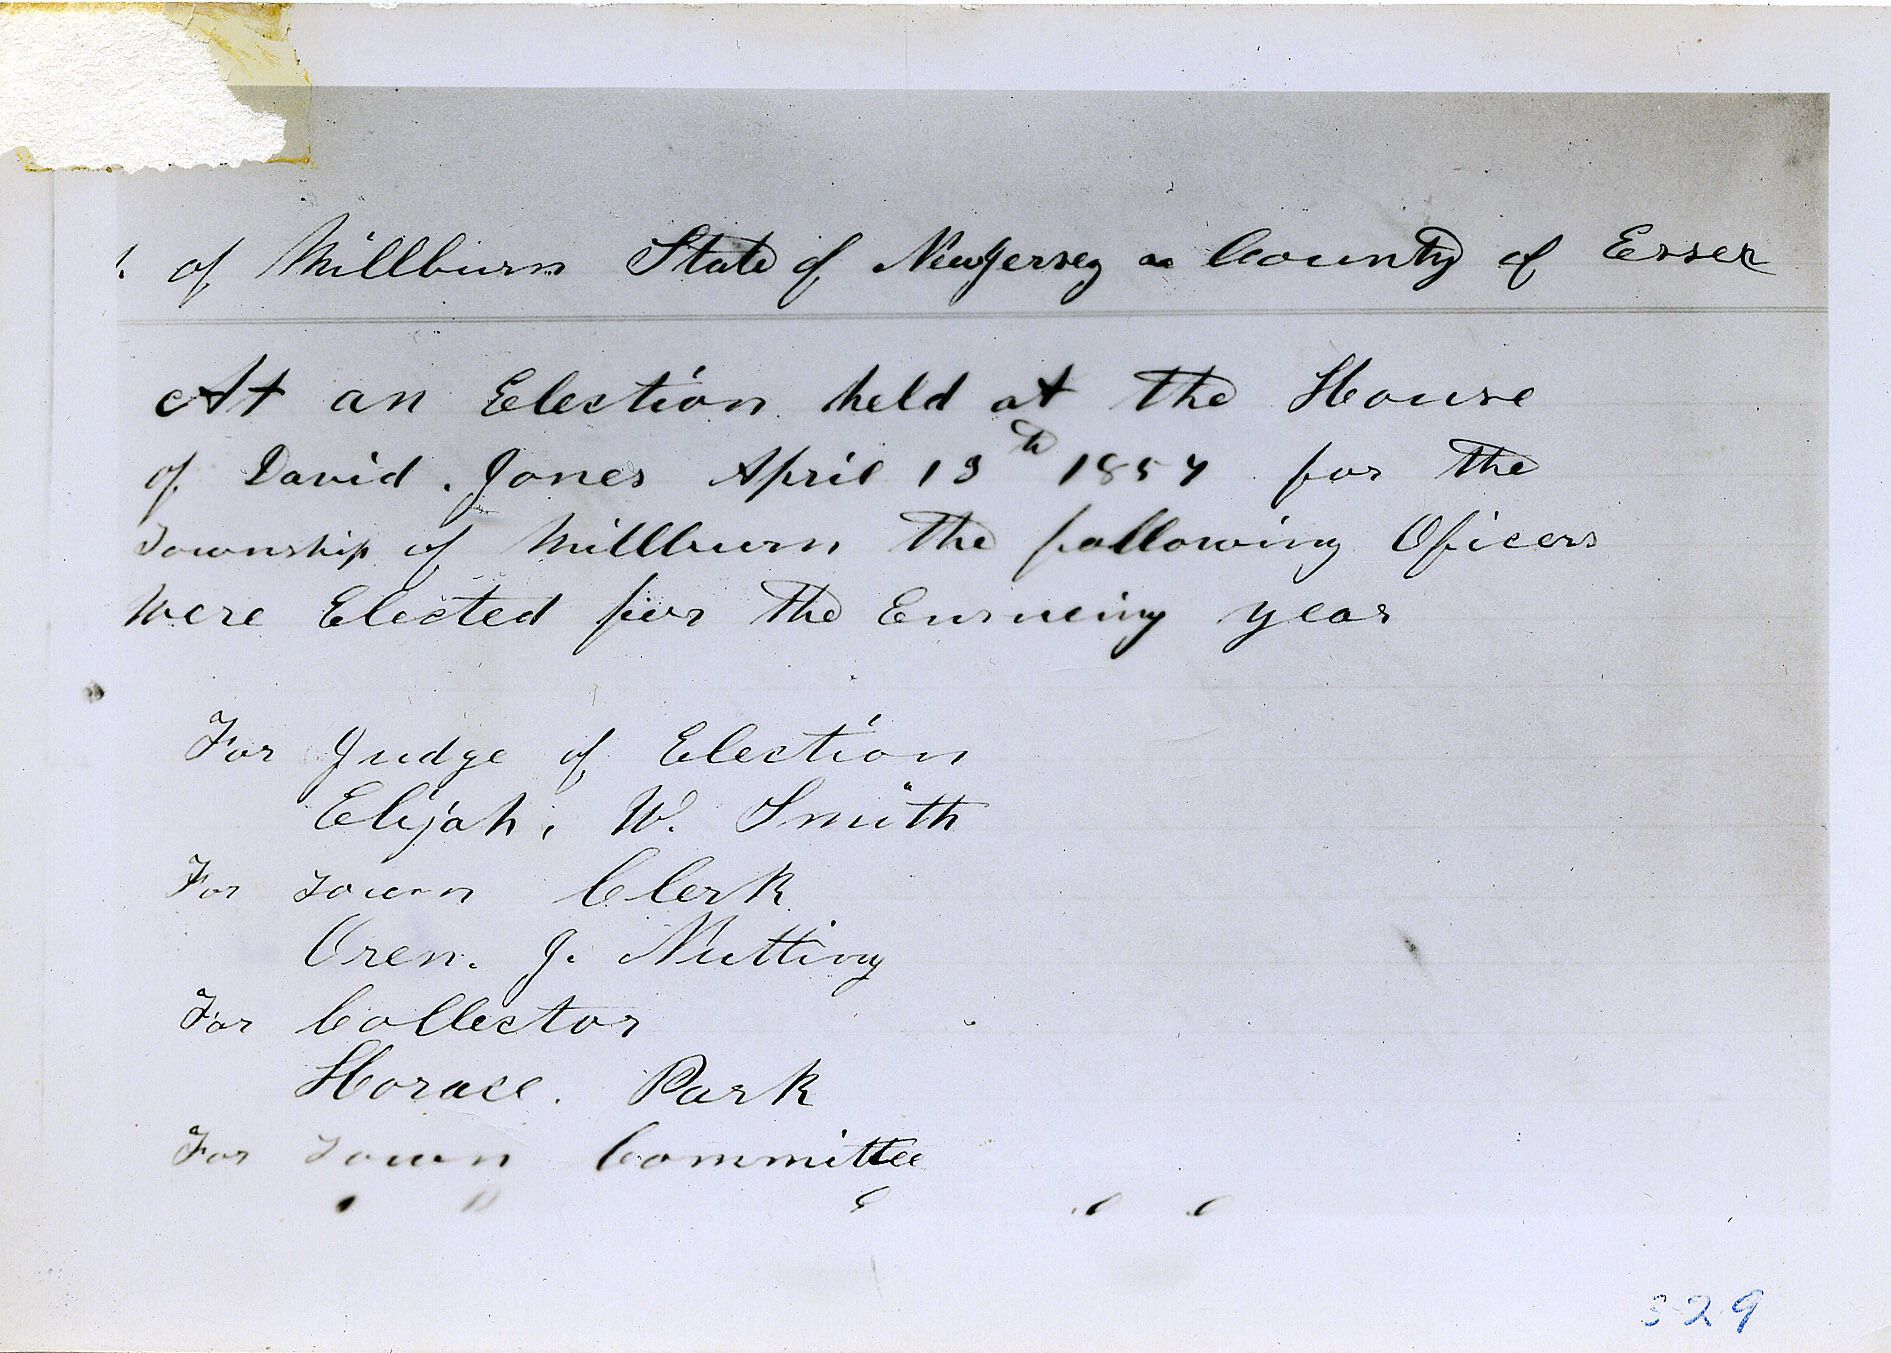 of Millburn State of New Jersey County of Essex
At an Election held at the House
of David. Jones April 13th 1857 for the
Township of Millburn the following Oficers
Were Elected for the Ensueing year
For Judge of Election
Elijah. W. Smith
For Town Clerk
Oren. J. Nutting
For Collector
Horace. Park
For Town Committee
329